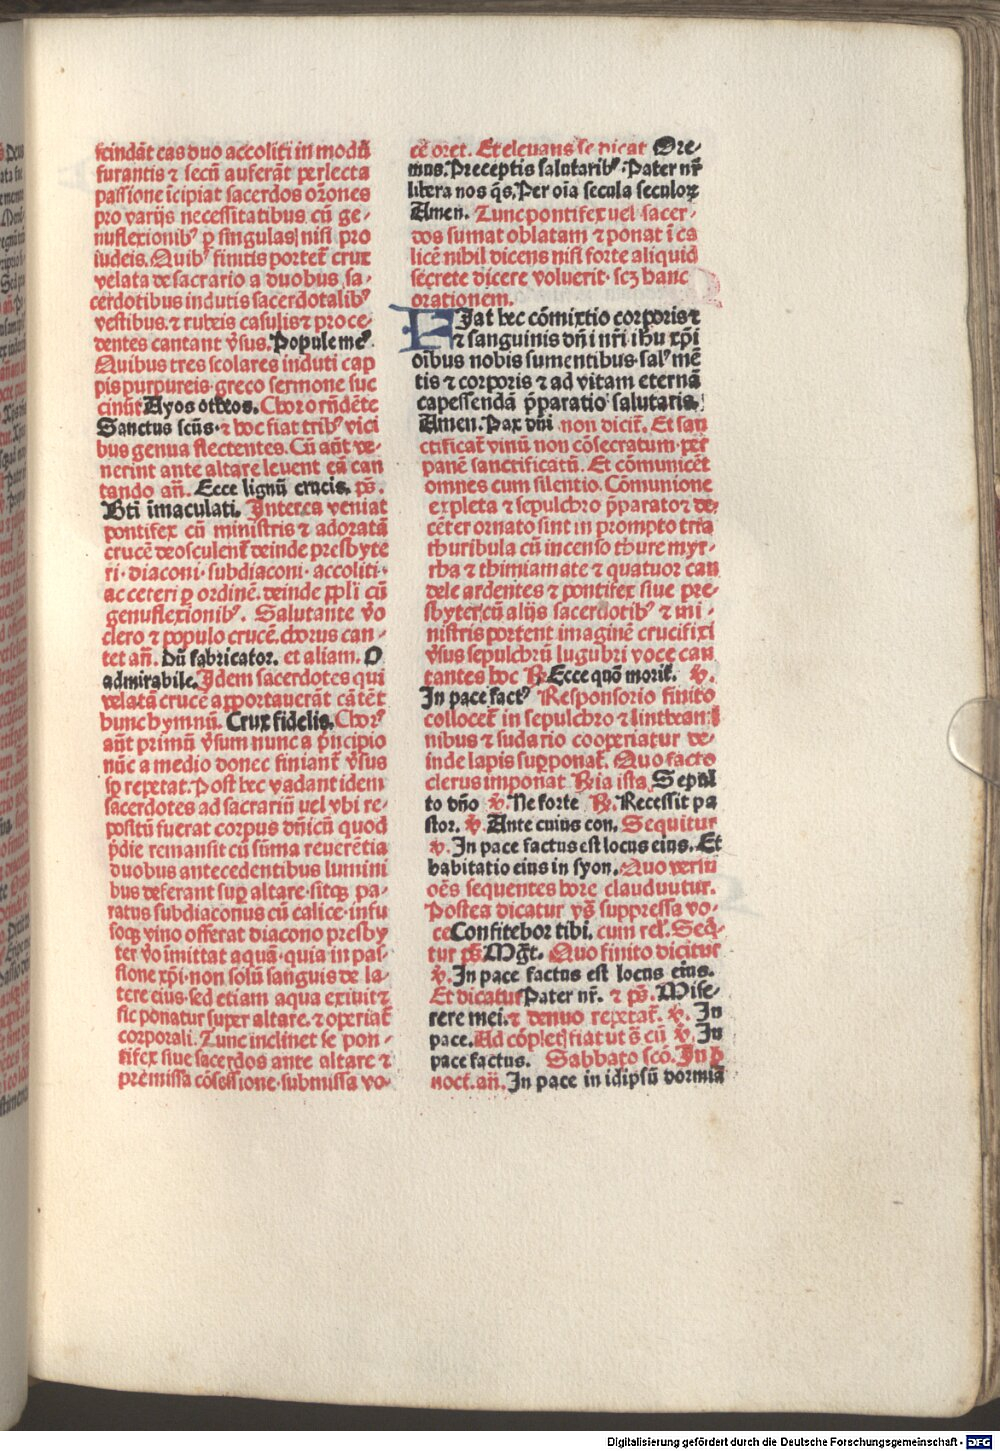 scindāt eas duo accoliti in modū
furantis ⁊ secū auferāt perlecta
passione īcipiat sacerdos or̄ones
pro varijs necessitatibus cū ge-
nuflexionibꝰ ꝑ singulas nisi pro
iudeis. Quibꝰ finitis portet᷑ crux
velata de sacrario a duobus sa-
cerdotibus indutis sacerdotalibꝰ
vestibus. ⁊ rubeis casulis ⁊ proce-
dentes cantant v̄sus. Popule meꝰ.
Quibus tres scolares induti cap
pis purpureis greco sermone suc
cinūt Ayos otheos. Choro rn̄dēte
Sanctus scūs. ⁊ hoc fiat tribꝰ vici
bus genua flectentes. Cū aūt ve-
nerint ante altare leuent eā can
tando añ. Ecce lignū crucis. ps̄.
Bti īmaculati. Interea veniat
pontifex cū ministris ⁊ adoratā
crucē deosculent᷑ deinde presbyte
ri· diaconi· subdiaconi· accoliti·
ac ceteri ꝑ ordinē. deinde ppl̄i cū
genuflexionibꝰ. Salutante v̄o
clero ⁊ populo crucē. chorus can-
tet añ. Dū fabricator. et aliam. O
admirabile. Idem sacerdotes qui
velatā crucē apportauerāt cātēt
hunc hymnū. Crux fidelis. Chorꝰ
aūt primū v̄sum nunc a p̄ncipio
nūc a medio donec finiant v̄sus
sp̄ repetat. Post hec vadant idem
sacerdotes ad sacrariū vel vbi re-
positū fuerat corpus dn̄icū quod
p̄die remansit cū sūma reuerētia
duobus antecedentibus lumini
bus deferant suꝑ altare. sitqꝫ pa-
ratus subdiaconus cū calice· infu
soqꝫ vino offerat diacono presby
ter v̄o imittat aquā· quia in pas-
sione xp̄i· non solū sanguis de la-
tere eius· sed etiam aqua exiuit ⁊
sic ponatur super altare. ⁊ operiat᷑
corporali. Tunc inclinet se pon-
tifex siue sacerdos ante altare ⁊
premissa cōfessione· submissa vo-
cē oret. Et eleuans se dicat Ore-
mus. Preceptis salutaribꝰ. Pater nr̄
libera nos q̄s. Per oīa secula seculoꝝ
Amen. Tunc pontifex uel sacer-
dos sumat oblatam ⁊ ponat ī ca
licē nihil dicens nisi forte aliquid
secrete dicere voluerit· scꝫ hanc
orationem.
FIat hec cōmixtio corporis ⁊
⁊ sanguinis dn̄i nr̄i ihu xp̄i
oībus nobis sumentibus· salꝰ mē
tis ⁊ corporis ⁊ ad vitam eternā
capessendā p̄paratio salutaris.
Amen. Pax dn̄i non dicit᷑. Et san
ctificat᷑ vinū non cōsecratum· per
panē sanctificatū. Et cōmunicēt
omnes cum silentio. Cōmunione
expleta ⁊ sepulchro p̄parato ⁊ de-
cēter ornato sint in prompto tria
thuribula cū incenso thure myr-
rha ⁊ thimiamate ⁊ quatuor can
dele ardentes ⁊ pontifex siue pre-
sbyter cū alijs sacerdotibꝰ ⁊ mi-
nistris portent imaginē crucifixi
v̄sus sepulchrū lugubri voce can
tantes hoc ℟. Ecce quō morit᷑. ℣.
In pace factꝰ Responsorio finito
collocet᷑ in sepulchro ⁊ linthean
nibus ⁊ sudario cooperiatur de-
inde lapis supponat᷑. Quo facto
clerus imponat ℟ia ista Sepul
to dn̄o ℣. Ne forte ℟. Recessit pa
stor. ℣. Ante cuius con. Sequitur
℣. In pace factus est locus eius. Et
habitatio eius in syon. Quo versu
oēs sequentes hore clauduntur.
Postea dicatur vs̄ suppressa vo-
ce Confitebor tibi. cum rel'. Seq̄-
tur ps̄ Mgt̄. Quo finito dicitur
℣. In pace factus est locus eius.
Et dicatur Pater nr̄. ⁊ ps̄. Mise-
rere mei. ⁊ denuo repetat᷑. ℣. In
pace. Ad cōplet̄ fiat ut s̄ cū ℣. In
pace factus. Sabbato scō. In p
noct. añ. In pace in idipsū dormiā
Digitalisierung gefördert durch die Deutsche Forschungsgemeinschaft - DFG